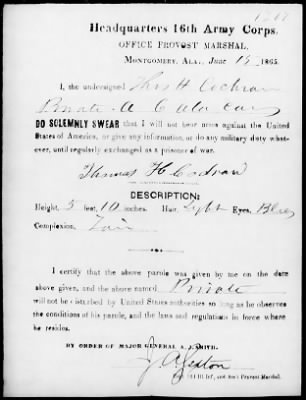 Headquarters 16th Army Corps,
OFFICE PROVOST MARSHAL,
MONTGOMERY, ALA., June 15 1865.
I, the undersigned Thos H Cochran
Private A 6 Ala Cav
DO SOLEMNLY SWEAR that I will not bear arms against the United
States of America, or give any information, or do any military duty whatso-
ever, until regularly exchanged as a prisoner of war.
Thomas H Cochran
DESCRIPTION:
Height, 5 feet, 10 inches. Hair, Light Eyes, Blue
Complexion, Fair
I certify that the above parole was given by me on the date
above given, and the above named Private
will not be disturbed by United States authorities so long as he observes
the conditions of his parole, and the laws and regulations in force where
he resides.
BY ORDER OF MAJOR GENERAL A. J. SMITH.
J. A. Sexton
and Ass't Provost Marshal.